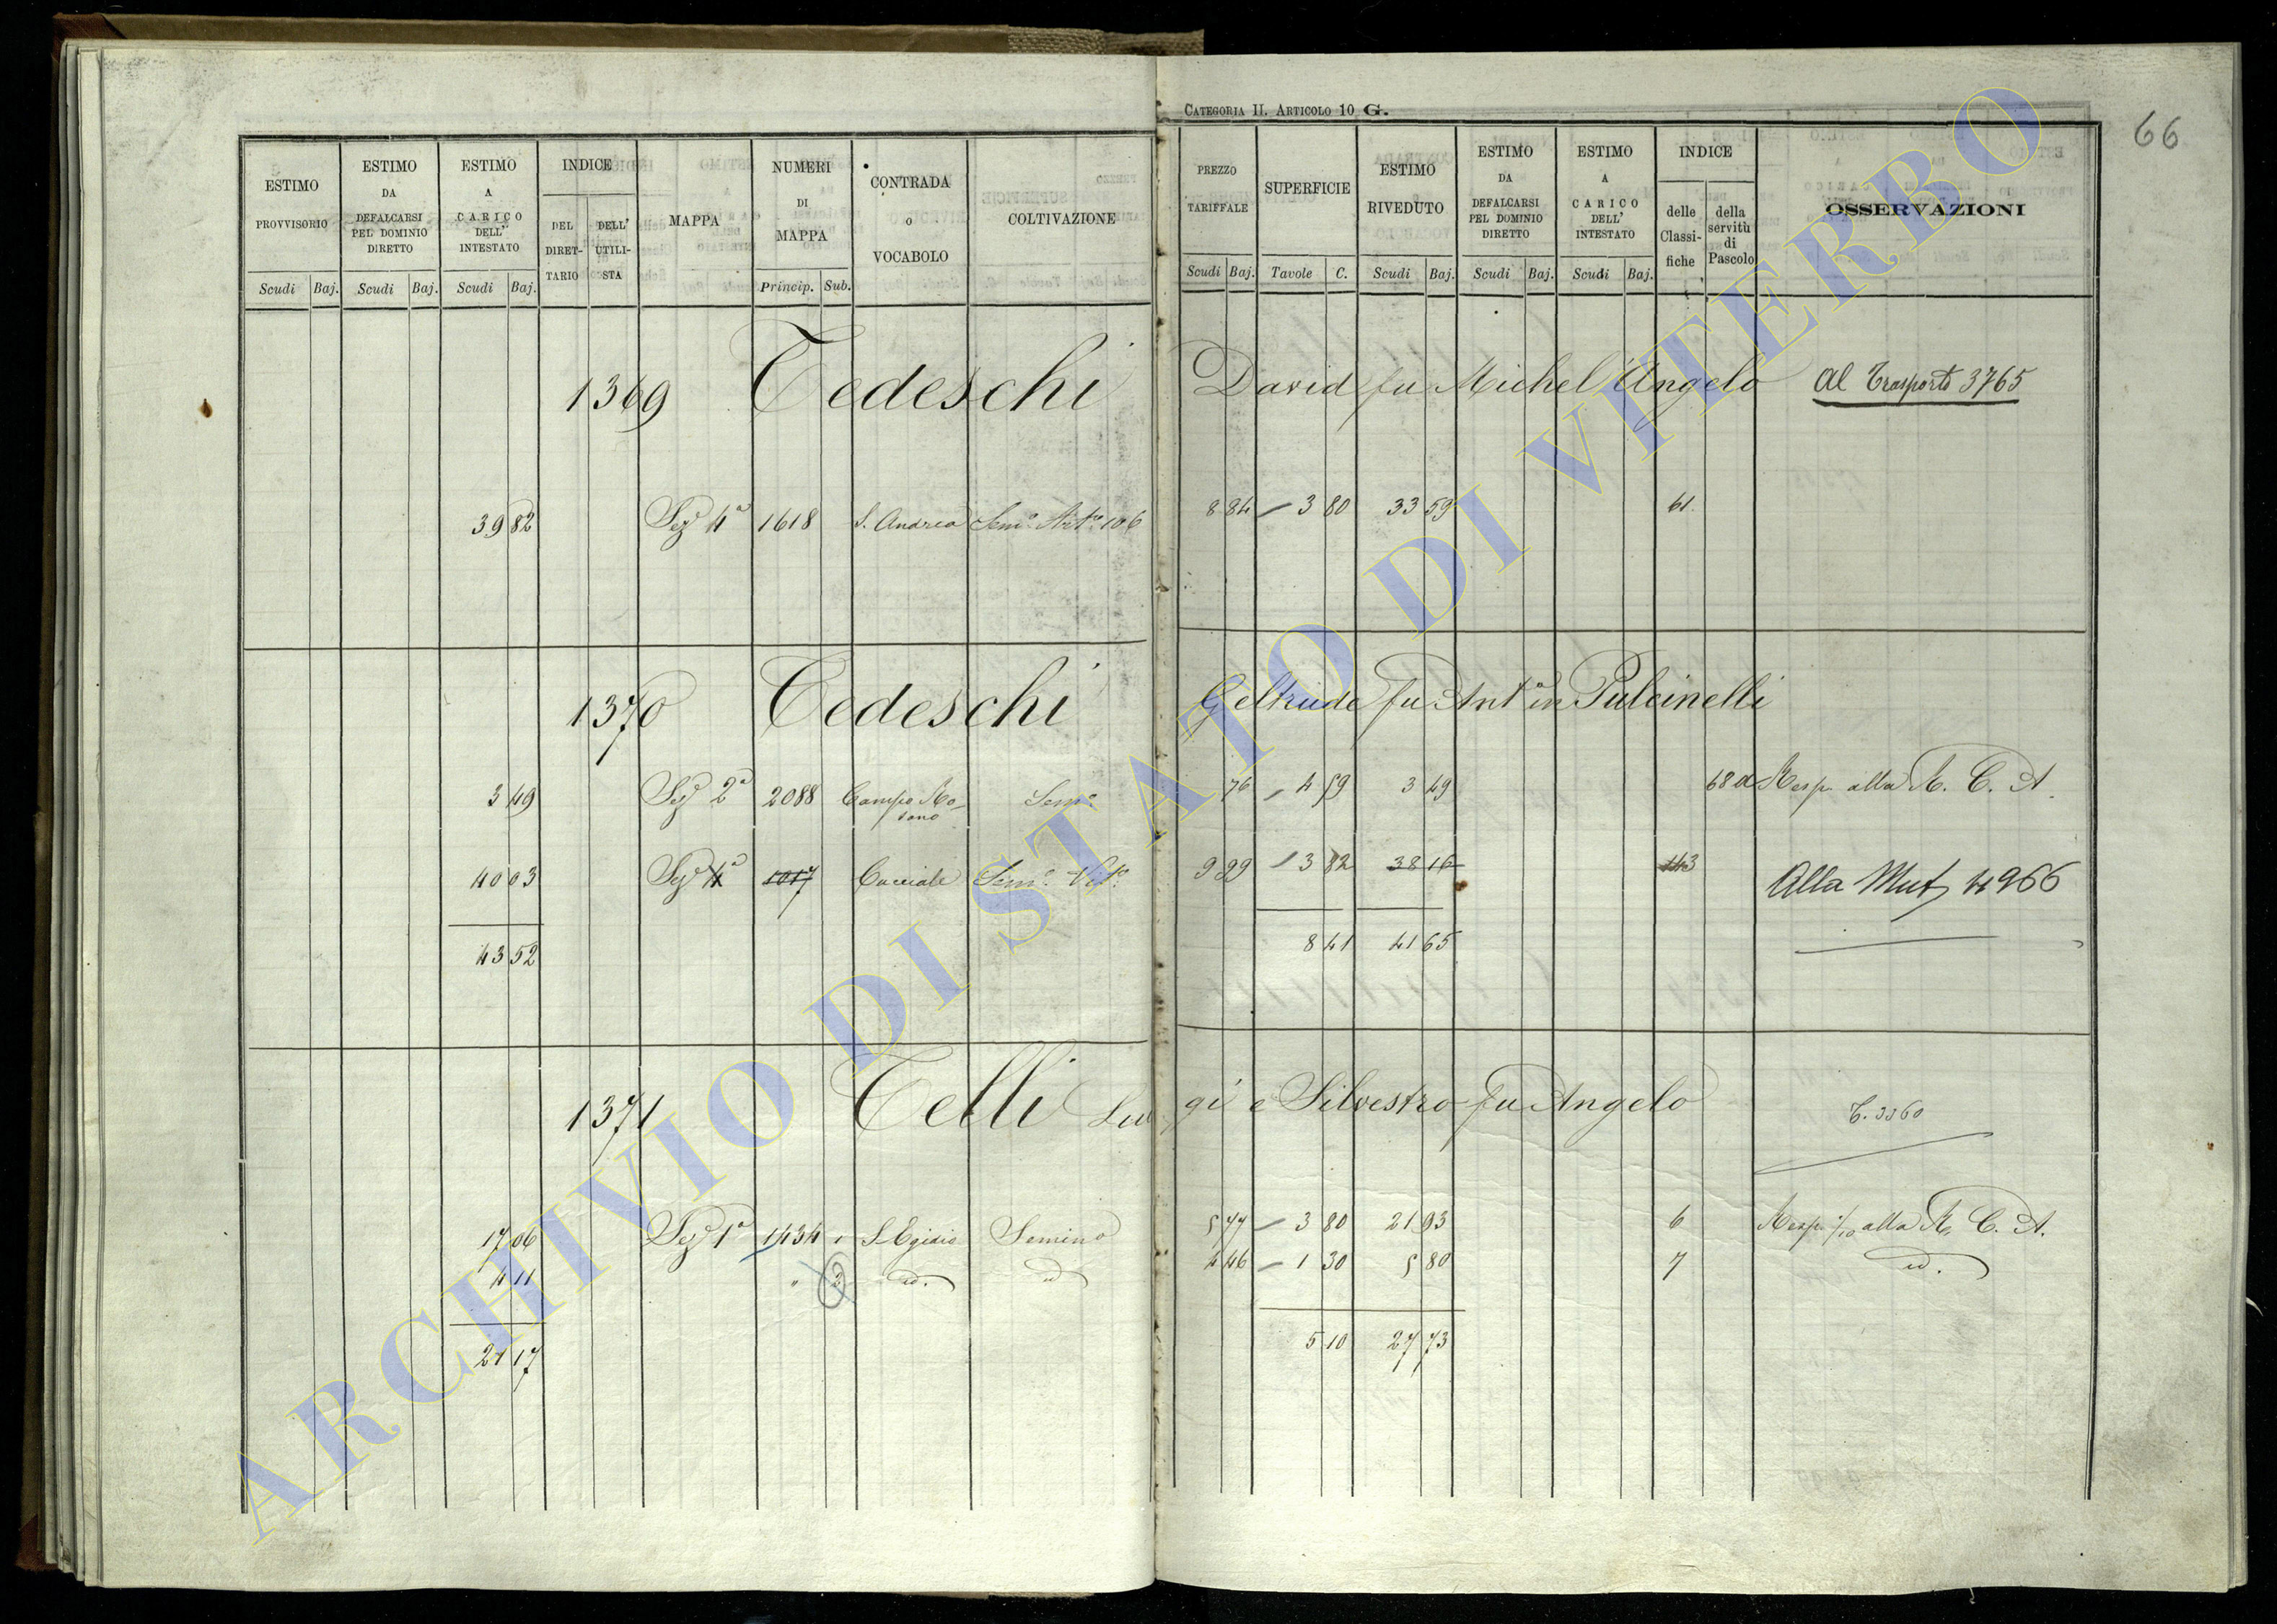 CATEGORIA II. ARTICOLO 10 G.
66
ESTIMO PROVVISORIO
ESTIMO DA DEFALCARSI PEL DOMINIO DIRETTO
ESTIMO A CARICO DELL' INTESTATO
INDICE
DEL DIRETTARIO
DELL' UTILISTA
MAPPA
NUMERI DI MAPPA
CONTRADA O VOCABOLO
COLTIVAZIONE
PREZZO TARIFFALE
SUPERFICIE
ESTIMO RIVEDUTO
ESTIMO DA DEFALCARSI PEL DOMINIO DIRETTO
ESTIMO A CARICO DELL' INTESTATO
INDICE
delle Classifiche
della servitù di Pascolo
OSSERVAZIONI
Scudi Baj. Scudi Baj. Scudi Baj. Princip. Sub.
Scudi Baj. Tavole C. Scudi Baj. Scudi Baj. Scudi Baj.
1369 Tedeschi David fu Michel'Angelo Al Trasporto 3765
39 82 Sez.e 4a 1618 S. Andrea Semo. Arto. 106 8 84 3 80 33 59 61
1370 Tedeschi Geltrude fu Anto in Pulcinelli
3 49 Sez.e 2a 2088 Campo Rosano Semo. 76 4 59 3 49 68 a Resp. alla R. C. A.
40 03 Sez.e 4a 1017 Cucciale Semo. Vito. 9 99 3 82 38 16 143 Alla Mut. 4966
43 52 8 41 41 65
1371 Telli Luigi e Silvestro fu Angelo T. 3360
17 06 Sez.e 1a 1434 1 S. Egidio Semino 5 77 3 80 21 93 6 Resp. 1/10 alla R. C. A.
4 11 " 2 id. id 4 46 1 30 5 80 7 id.
21 17 5 10 27 73
ARCHIVIO DI STATO DI VITERBO